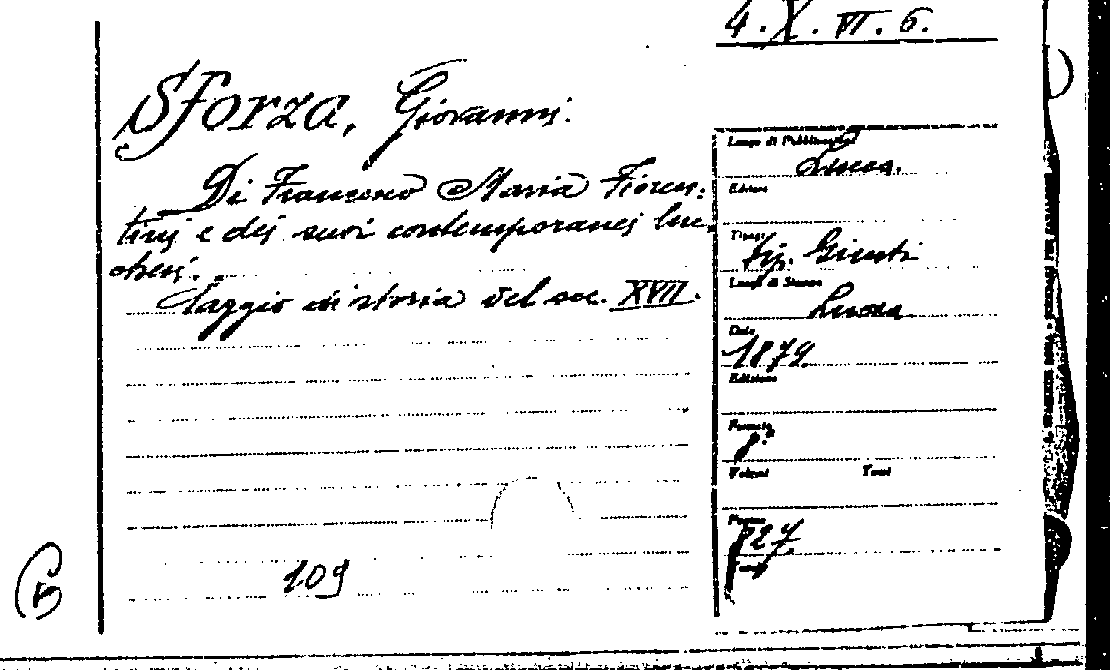 4.X.VI.6.
Sforza, Giovanni.
Di Francesco Maria Fioren-
tini e dei suoi contemporanei luc-
chesi.
Saggio di storia del sec. XVII.
109
Luogo di Pubblicazione
Lucca.
Editore
Tipogr.
Tip. Giusti
Luogo di Stampa
Lucca
Data
1879
Edizione
Formato
8°
Volumi Tomi
Pagine
827.